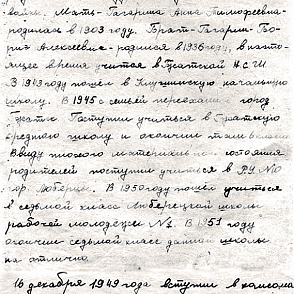 Мать-Гагарина Анна Тимофеевна-
родилась в 1903 году. Брат-Гагарин Бо-
рис Алексеевич-родился в 1936 году, в насто-
ящее время учится в Гжатской Н.С.Ш.
В 1943 году пошёл в Клушинскую начальную
школу. В 1945 с семьёй переехали город
Гжатск. Поступил учиться в Гжатскую
среднюю школу и окончил там
Ввиду плохого материального состояния
родителей поступил учиться в РУ №10
гор. Люберцы. В 1950 году пошёл учиться
в седьмой класс Люберецкой школы
рабочей молодёжи №1. В 1951 году
окончил седьмой класс данной школы
на отлично.
16 декабря 1949 года вступил в комсомол